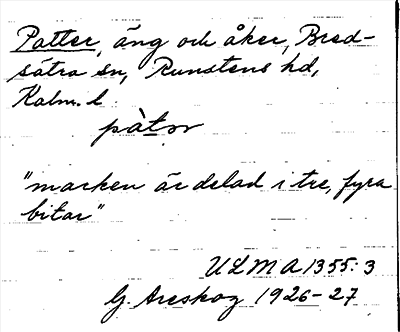 Patter, äng och åker, Bred-
sätra sn, Runstens hd,
Kalm. l
pàtər
"marken är delad i tre, fyra
bitar"
ULMA 1355:3
G. Areskog 1926-27